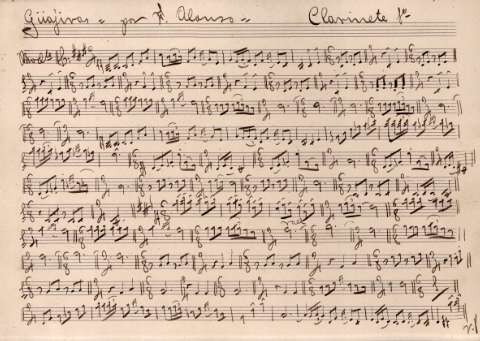 Guajiras = por F. Alonso = Clarinete 1º